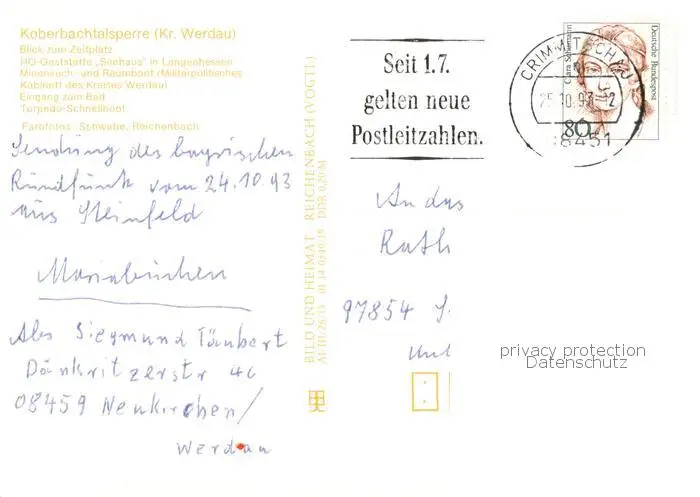 Koberbachtalsperre (Kr. Werdau)
Blick zum Zeltplatz
HO-Gaststätte „Seehaus" in Langenhessen
Minensuch- und Räumboot/Militärpolitisches
Kabinett des Kreises Werdau
Eingang zum Bad
Torpedo-Schnellboot
Farbfotos: Schwabe, Reichenbach
Sendung des bayrischen
Rundfunk vom 24.10.93
aus Steinfeld
Mariabuchen
Abs Siegmund Täubert
Dänkritzerstr 4c
08459 Neukirchen/
Werdau
BILD UND HEIMAT REICHENBACH (VOGTL)
DDR 0,20 M
Seit 1.7.
gelten neue
Postleitzahlen.
CRIMMITSCHAU
25.10.93
08451
Clara Schumann
80
Deutsche Bundespost
An das
Rath
97854 S
privacy protection
Datenschutz